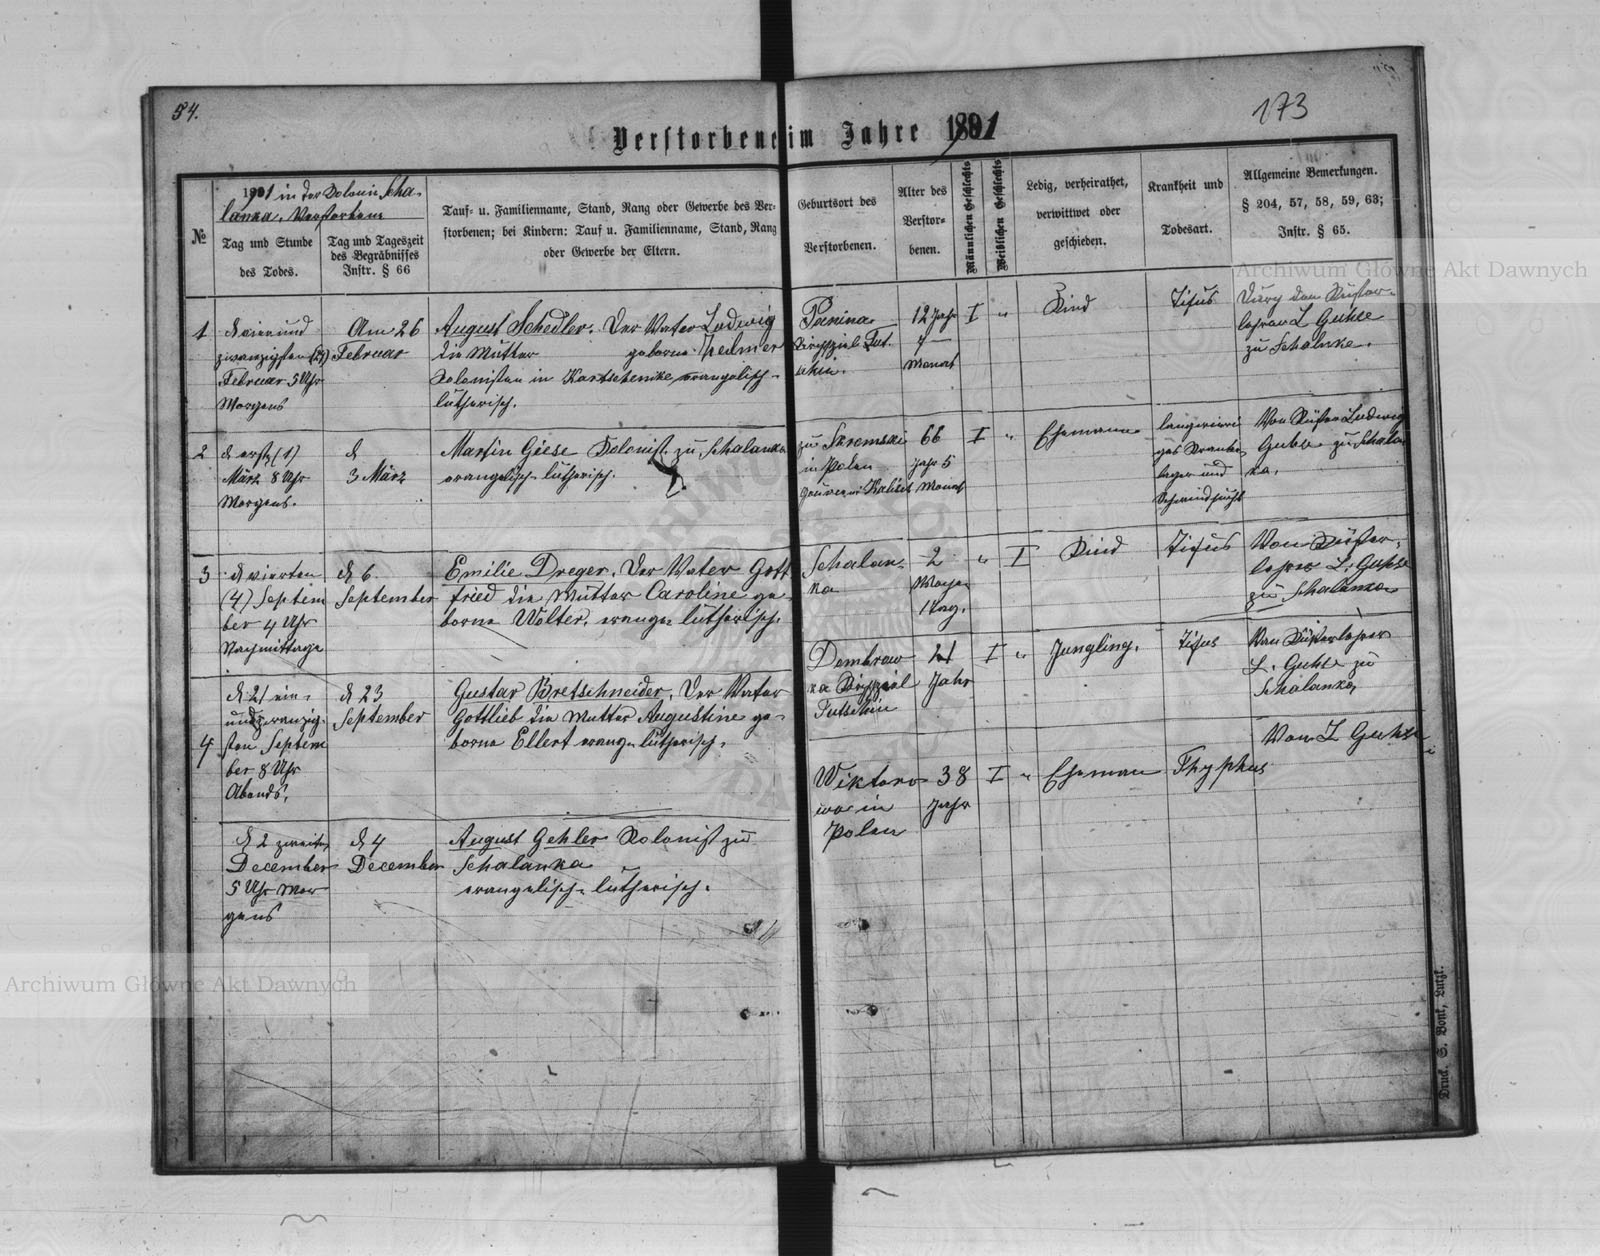 54.
173
Verstorbene im Jahre 1891
№
1901 in der Kolonie Scha-
lanka Verstorbene
Tag und Stunde
des Todes.
Tag und Tageszeit
des Begräbnisses
Instr. § 66
Tauf- u. Familienname, Stand, Rang oder Gewerbe des Ver-
storbenen; bei Kindern: Tauf u. Familienname, Stand, Rang
oder Gewerbe der Eltern.
Geburtsort des
Verstorbenen.
Alter des
Verstor-
benen.
Männlichen Geschlechts
Weiblichen Geschlechts
Ledig, verheirathet,
verwittwet oder
geschieden.
Krankheit und
Todesart.
Allgemeine Bemerkungen.
§ 204, 57, 58, 59, 63;
Instr. § 65.
1
d vierund
zwanzigsten (24)
Februar 5 Uhr
Morgens
Am 26
Februar
August Schedler. Der Vater Ludwig
die Mutter geborne
Kolonisten in evangelisch-
lutherisch.
Kirchspiel Tut-
schin.
12 Jahr
Monat
I
"
Kind
Tifus
Durch den Küster-
lehrer L Guhse
zu Schalanka.
2
d erst (1)
März 8 Uhr
Morgens.
d
3 März
Martin Giese Kolonist zu Schalanka
evangelisch-lutherisch.
zu
in Polen
Kalisch
66
Jahr 5
Monat
I
"
Ehemann
langwieri
ges Kranken
lager und
Schwindsucht
Von Küster Ludwig
Guhse zu Schalan
ka.
3
d vierten
(4) Septem
ber 4 Uhr
Nachmittage
d 6
September
Emilie Dreger. Der Vater Gott
fried die Mutter Caroline ge-
borne Wolter. evang-lutherisch.
Schalan-
ka
2
Wochen
1 Tag.
"
I
Kind
Tifus
Von Küster-
lehrer L. Guhse
zu Schalanka
4
d 21 ein-
undzwanzig-
sten Septem
ber 8 Uhr
Abends.
d 23
September
Gustav Bretschneider. Der Vater
Gottlieb die Mutter Augustine ge-
borne Ellert evang-lutherisch.
Dombrow
ka Kirchspiel
Tutschin
21
Jahr
I
"
Jungling.
Tifus
Von Küsterlehrer
L. Guhse zu
Schalanka
d 2 zweiten
December
5 Uhr Mor
gens
d 4
December
August Gehler Kolonist zu
Schalanka
evangelisch-lutherisch.
Wiktoro
wo in
Polen
38
Jahr
I
"
Eheman
Thyphus
Von L Guhse
Druck. S. Bonk, Lutzk.
Archiwum Główne Akt Dawnych
Archiwum Główne Akt Dawnych